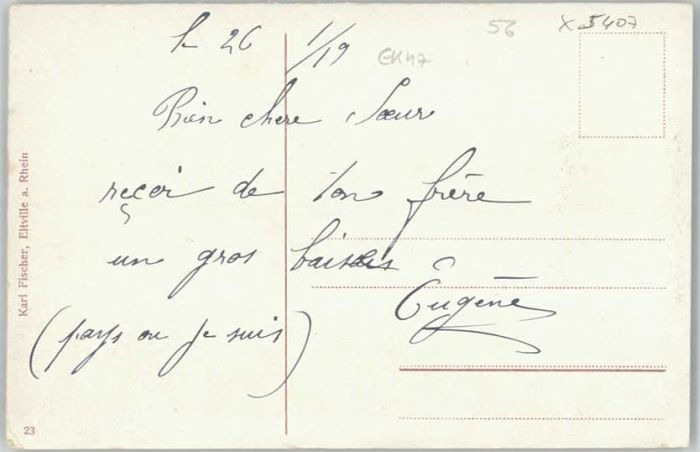 56
X 5407
EK47
le 26 1/19
Bien chere Sœur
reçoi de ton frère
un gros baisers
Eugène
(pays ou je suis)
Karl Fischer, Eltville a. Rhein
23